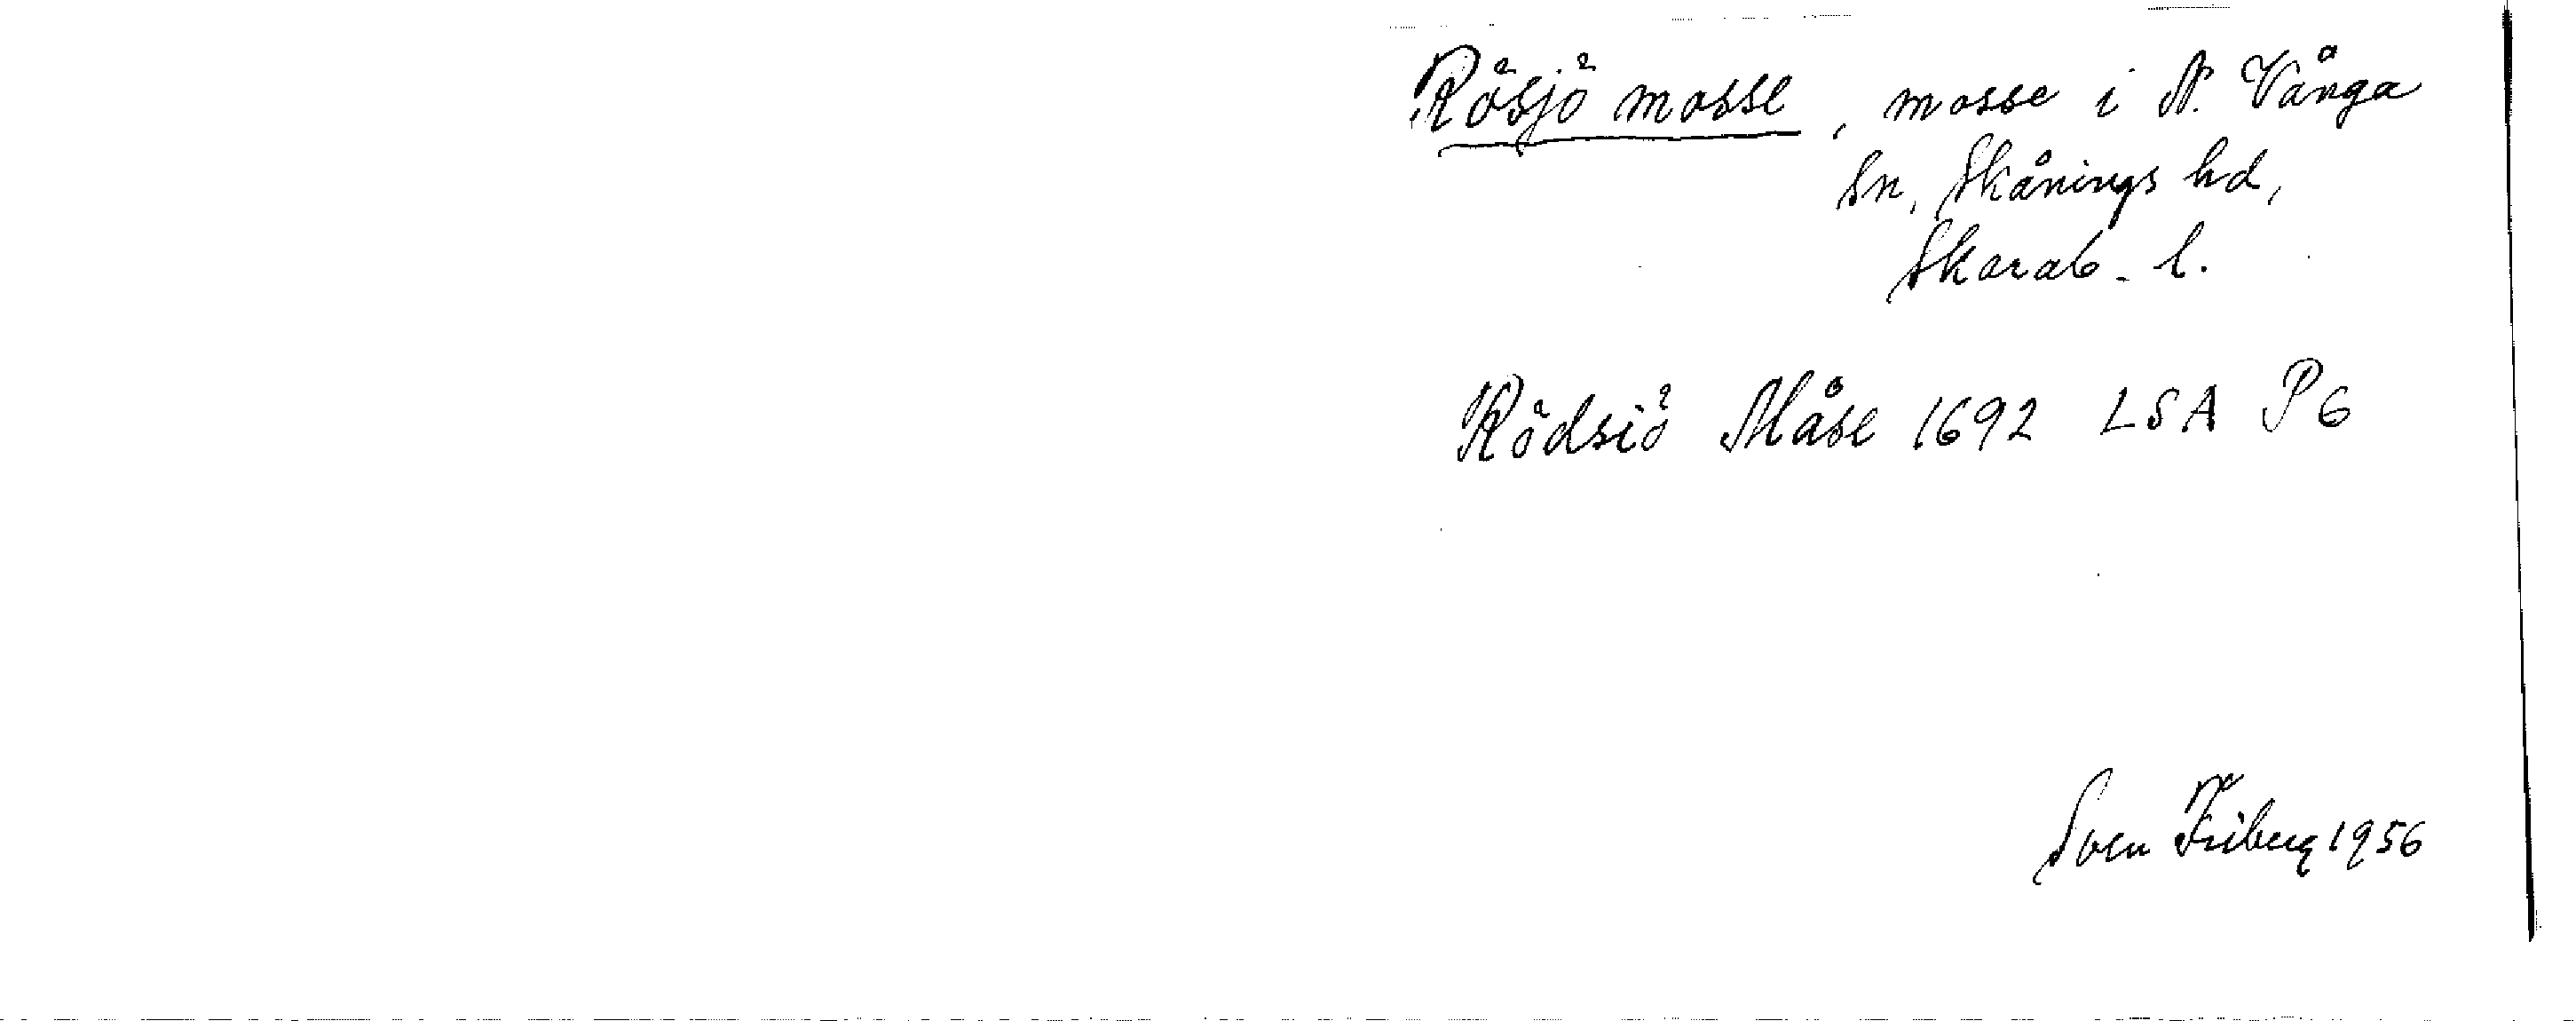 Rösjö mosse, mosse i N. Vånga
sn, Skånings hd,
Skarab. l.
Rödsiö Måse 1692 LSA P6
Sven Friberg 1956